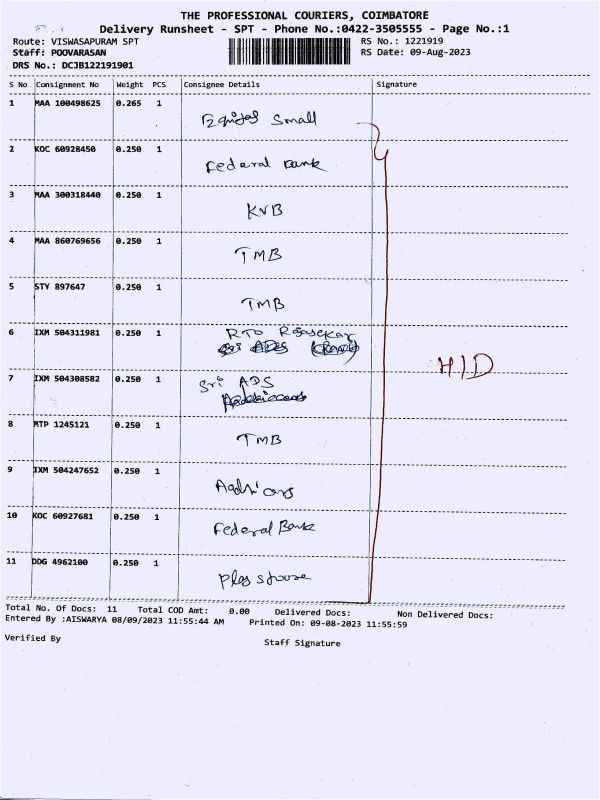 THE PROFESSIONAL COURIERS, COIMBATORE
Delivery Runsheet - SPT - Phone No.:0422-3505555 - Page No.:1
Route: VISWASAPURAM SPT
Staff: POOVARASAN
DRS No.: DCJB122191901
RS No.: 1221919
RS Date: 09-Aug-2023
S No Consignment No Weight PCS Consignee Details Signature
1 MAA 100498625 0.265 1 Equitas Small
2 KOC 60928450 0.250 1 Federal Bank
3 MAA 300318440 0.250 1 KVB
4 MAA 860769656 0.250 1 TMB
5 STV 897647 0.250 1 TMB
6 IXM 504311981 0.250 1 RTO Rajasekar
Sri ADS
7 IXM 504308582 0.250 1 Sri ADS
8 MTP 1245121 0.250 1 TMB
9 IXM 504247652 0.250 1
10 KOC 60927681 0.250 1 Federal Bank
11 DDG 4962100 0.250 1
H/D
Total No. Of Docs: 11 Total COD Amt: 0.00 Delivered Docs: Non Delivered Docs:
Entered By :AISWARYA 08/09/2023 11:55:44 AM Printed On: 09-08-2023 11:55:59
Verified By Staff Signature